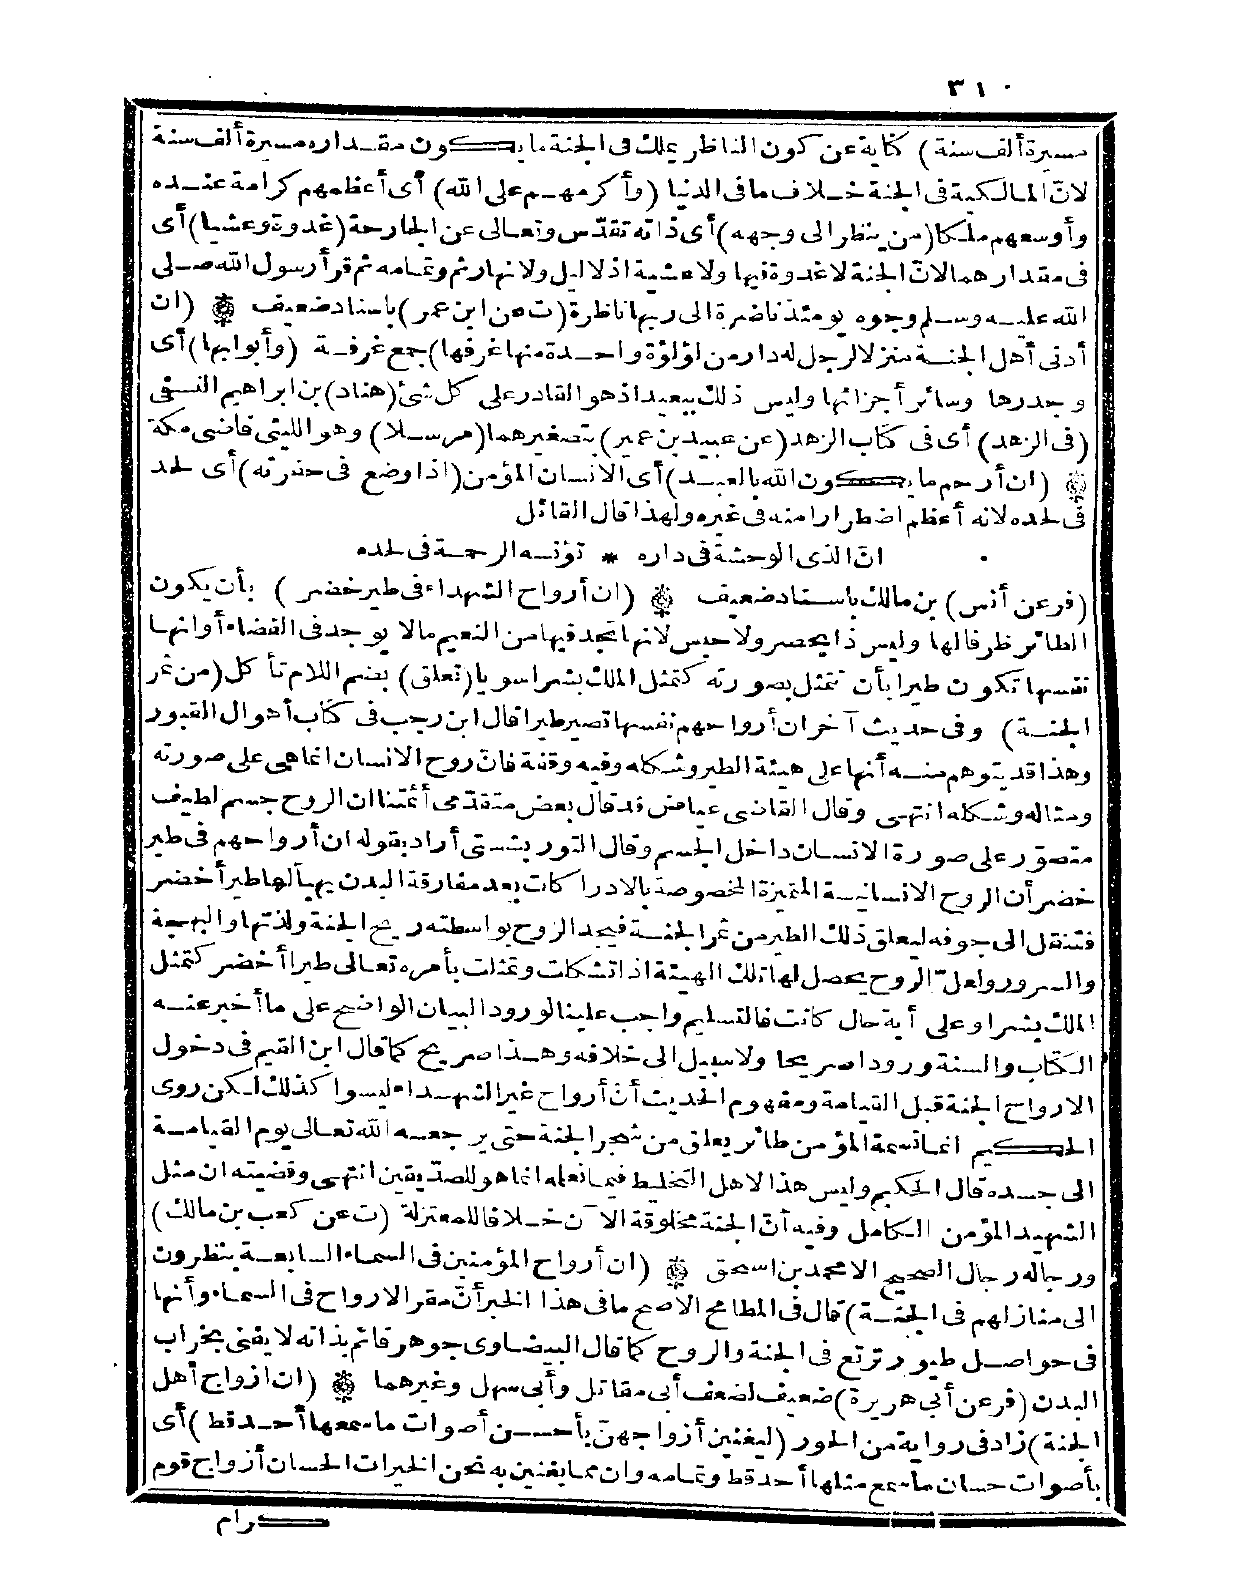 ٣١٠
مسيرة ألف سنة) كناية عن كون الناظر يملك فى الجنة ما يكون مقداره مسيرة ألف سنة
لانّ المالكية فى الجنة خلاف ما فى الدنيا (وأكرمهم على الله) أى أعظمهم كرامة عنده
وأوسعهم ملكا (من ينظر الى وجهه) أى ذاته تقدّس وتعالى عن الجارحة (غدوة وعشيا) أى
فى مقدارهما لانّ الجنة لا غدوة فيها ولا عشية اذ لا ليل ولا نهار ثم وتمامه ثم قرأ رسول الله صلى
الله عليه وسلم وجوه يومئذ ناضرة الى ربها ناظرة (ت عن ابن عمر) باسناد ضعيف ۞ (ان
أدنى أهل الجنة منزلا لرجل له دار من لؤلؤة واحدة منها غرفها) جمع غرفة (وأبوابها) أى
وجدرها وسائر أجزائها وليس ذلك ببعيد اذ هو القادر على كل شئ (هناد) بن ابراهيم النسفى
(فى الزهد) أى فى كتاب الزهد (عن عبيد بن عمير) بتصغيرهما (مرسلا) وهو الليثى قاضى مكة
۞ (ان أرحم ما يكون الله بالعبد) أى الانسان المؤمن (اذا وضع فى حفرته) أى لحد
فى لحده لانه أعظم اضطرارا منه فى غيره ولهذا قال القائل
انّ الذى الوحشة فى داره * تؤنسه الرحمة فى لحده
(فر عن أنس) بن مالك باسناد ضعيف ۞ (ان أرواح الشهداء فى طير خضر) بأن يكون
الطائر ظرفا لها وليس ذا بحصر ولا حبس لانها تجد فيها من النعيم ما لا يوجد فى الفضاء أو انها
نفسها تكون طيرا بأن تتمثل بصورته كتمثل الملك بشرا سويا (تعلق) بضم اللام تأكل (من ثمر
الجنة) وفى حديث آخر ان أرواحهم نفسها تصير طيرا قال ابن رجب فى كتاب أهوال القبور
وهذا قد يتوهم منه أنها على هيئة الطير وشكله وفيه وقفة فانّ روح الانسان انما هى على صورته
ومثاله وشكله انتهى وقال القاضى عياض قد قال بعض متقدمى أئمتنا ان الروح جسم لطيف
متصوّر على صورة الانسان داخل الجسم وقال التوربشتى أراد بقوله ان أرواحهم فى طير
خضر أن الروح الانسانية المتميزة المخصوصة بالادراكات بعد مفارقة البدن يهيأ لها طير أخضر
فتنتقل الى جوفه ليعلق ذلك الطير من ثمر الجنة فيجد الروح بواسطته ريح الجنة ولذتها والبهجة
والسرور ولعلّ الروح يحصل لها تلك الهيئة اذا تشكلت وتمثلت بأمره تعالى طيرا أخضر كتمثل
الملك بشرا وعلى أية حال كانت فالتسليم واجب علينا لورود البيان الواضح على ما أخبر عنه
الكتاب والسنة ورودا صريحا ولا سبيل الى خلافه وهذا صريح كما قال ابن القيم فى دخول
الارواح الجنة قبل القيامة ومفهوم الحديث أنّ أرواح غير الشهداء ليسوا كذلك لكن روى
الحكيم انما نسمة المؤمن طائر يعلق من شجر الجنة حتى يرجعه الله تعالى يوم القيامة
الى جسده قال الحكيم وليس هذا لاهل التخليط فيما نعلمه انما هو للصدّيقين انتهى وقضيته ان مثل
الشهيد المؤمن الكامل وفيه أنّ الجنة مخلوقة الآن خلافا للمعتزلة (ت عن كعب بن مالك)
ورجاله رجال الصحيح الا محمد بن اسحق ۞ (ان أرواح المؤمنين فى السماء السابعة ينظرون
الى منازلهم فى الجنة) قال فى المطامح الاصح ما فى هذا الخبر أنّ مقر الارواح فى السماء وأنها
فى حواصل طيور ترتع فى الجنة والروح كما قال البيضاوى جوهر قائم بذاته لا يفنى بخراب
البدن (فر عن أبى هريرة) ضعيف لضعف أبى مقاتل وأبى سهل وغيرهما ۞ (ان ازواج أهل
الجنة) زاد فى رواية من الحور (ليغنين أزواجهنّ بأحسن أصوات ما سمعها أحد قط) أى
بأصوات حسان ما سمع مثلها أحد قط وتمامه وان مما يغنين به نحن الخيرات الحسان أزواج قوم
كرام